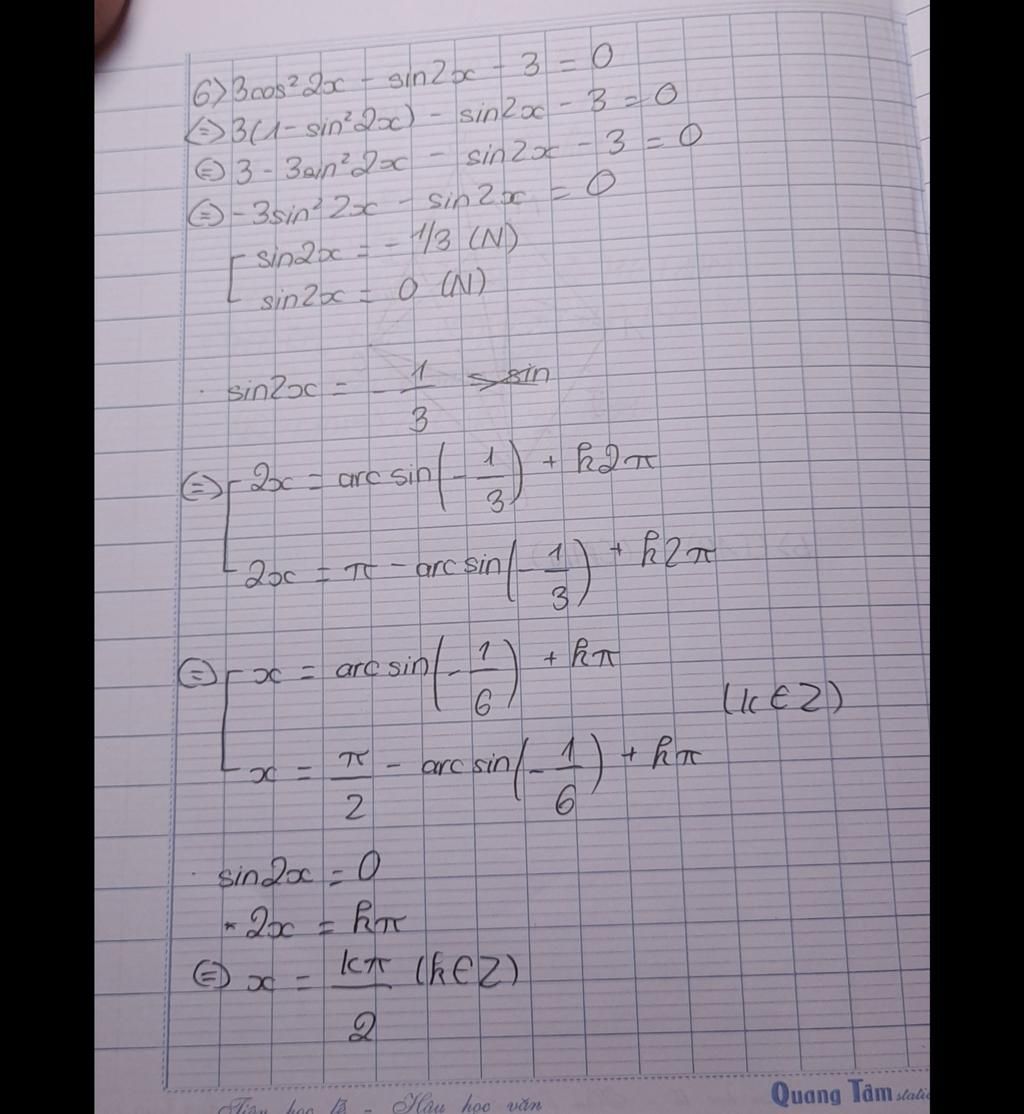 6) 3cos² 2x - sin2x - 3 = 0
<=> 3(1 - sin² 2x) - sin2x - 3 = 0
<=> 3 - 3sin² 2x - sin2x - 3 = 0
<=> -3sin² 2x - sin2x = 0
[ sin2x = -1/3 (N)
sin2x = 0 (N)
· sin2x = -1/3 <=> sin
<=> [ 2x = arcsin(-1/3) + k2π
2x = π - arcsin(-1/3) + k2π
<=> [ x = arcsin(-1/6) + kπ
(k ∈ Z)
x = π/2 - arcsin(-1/6) + kπ
· sin2x = 0
- 2x = kπ
<=> x = kπ/2 (k ∈ Z)
Tiên học lễ - Hậu học văn
Quang Tâm